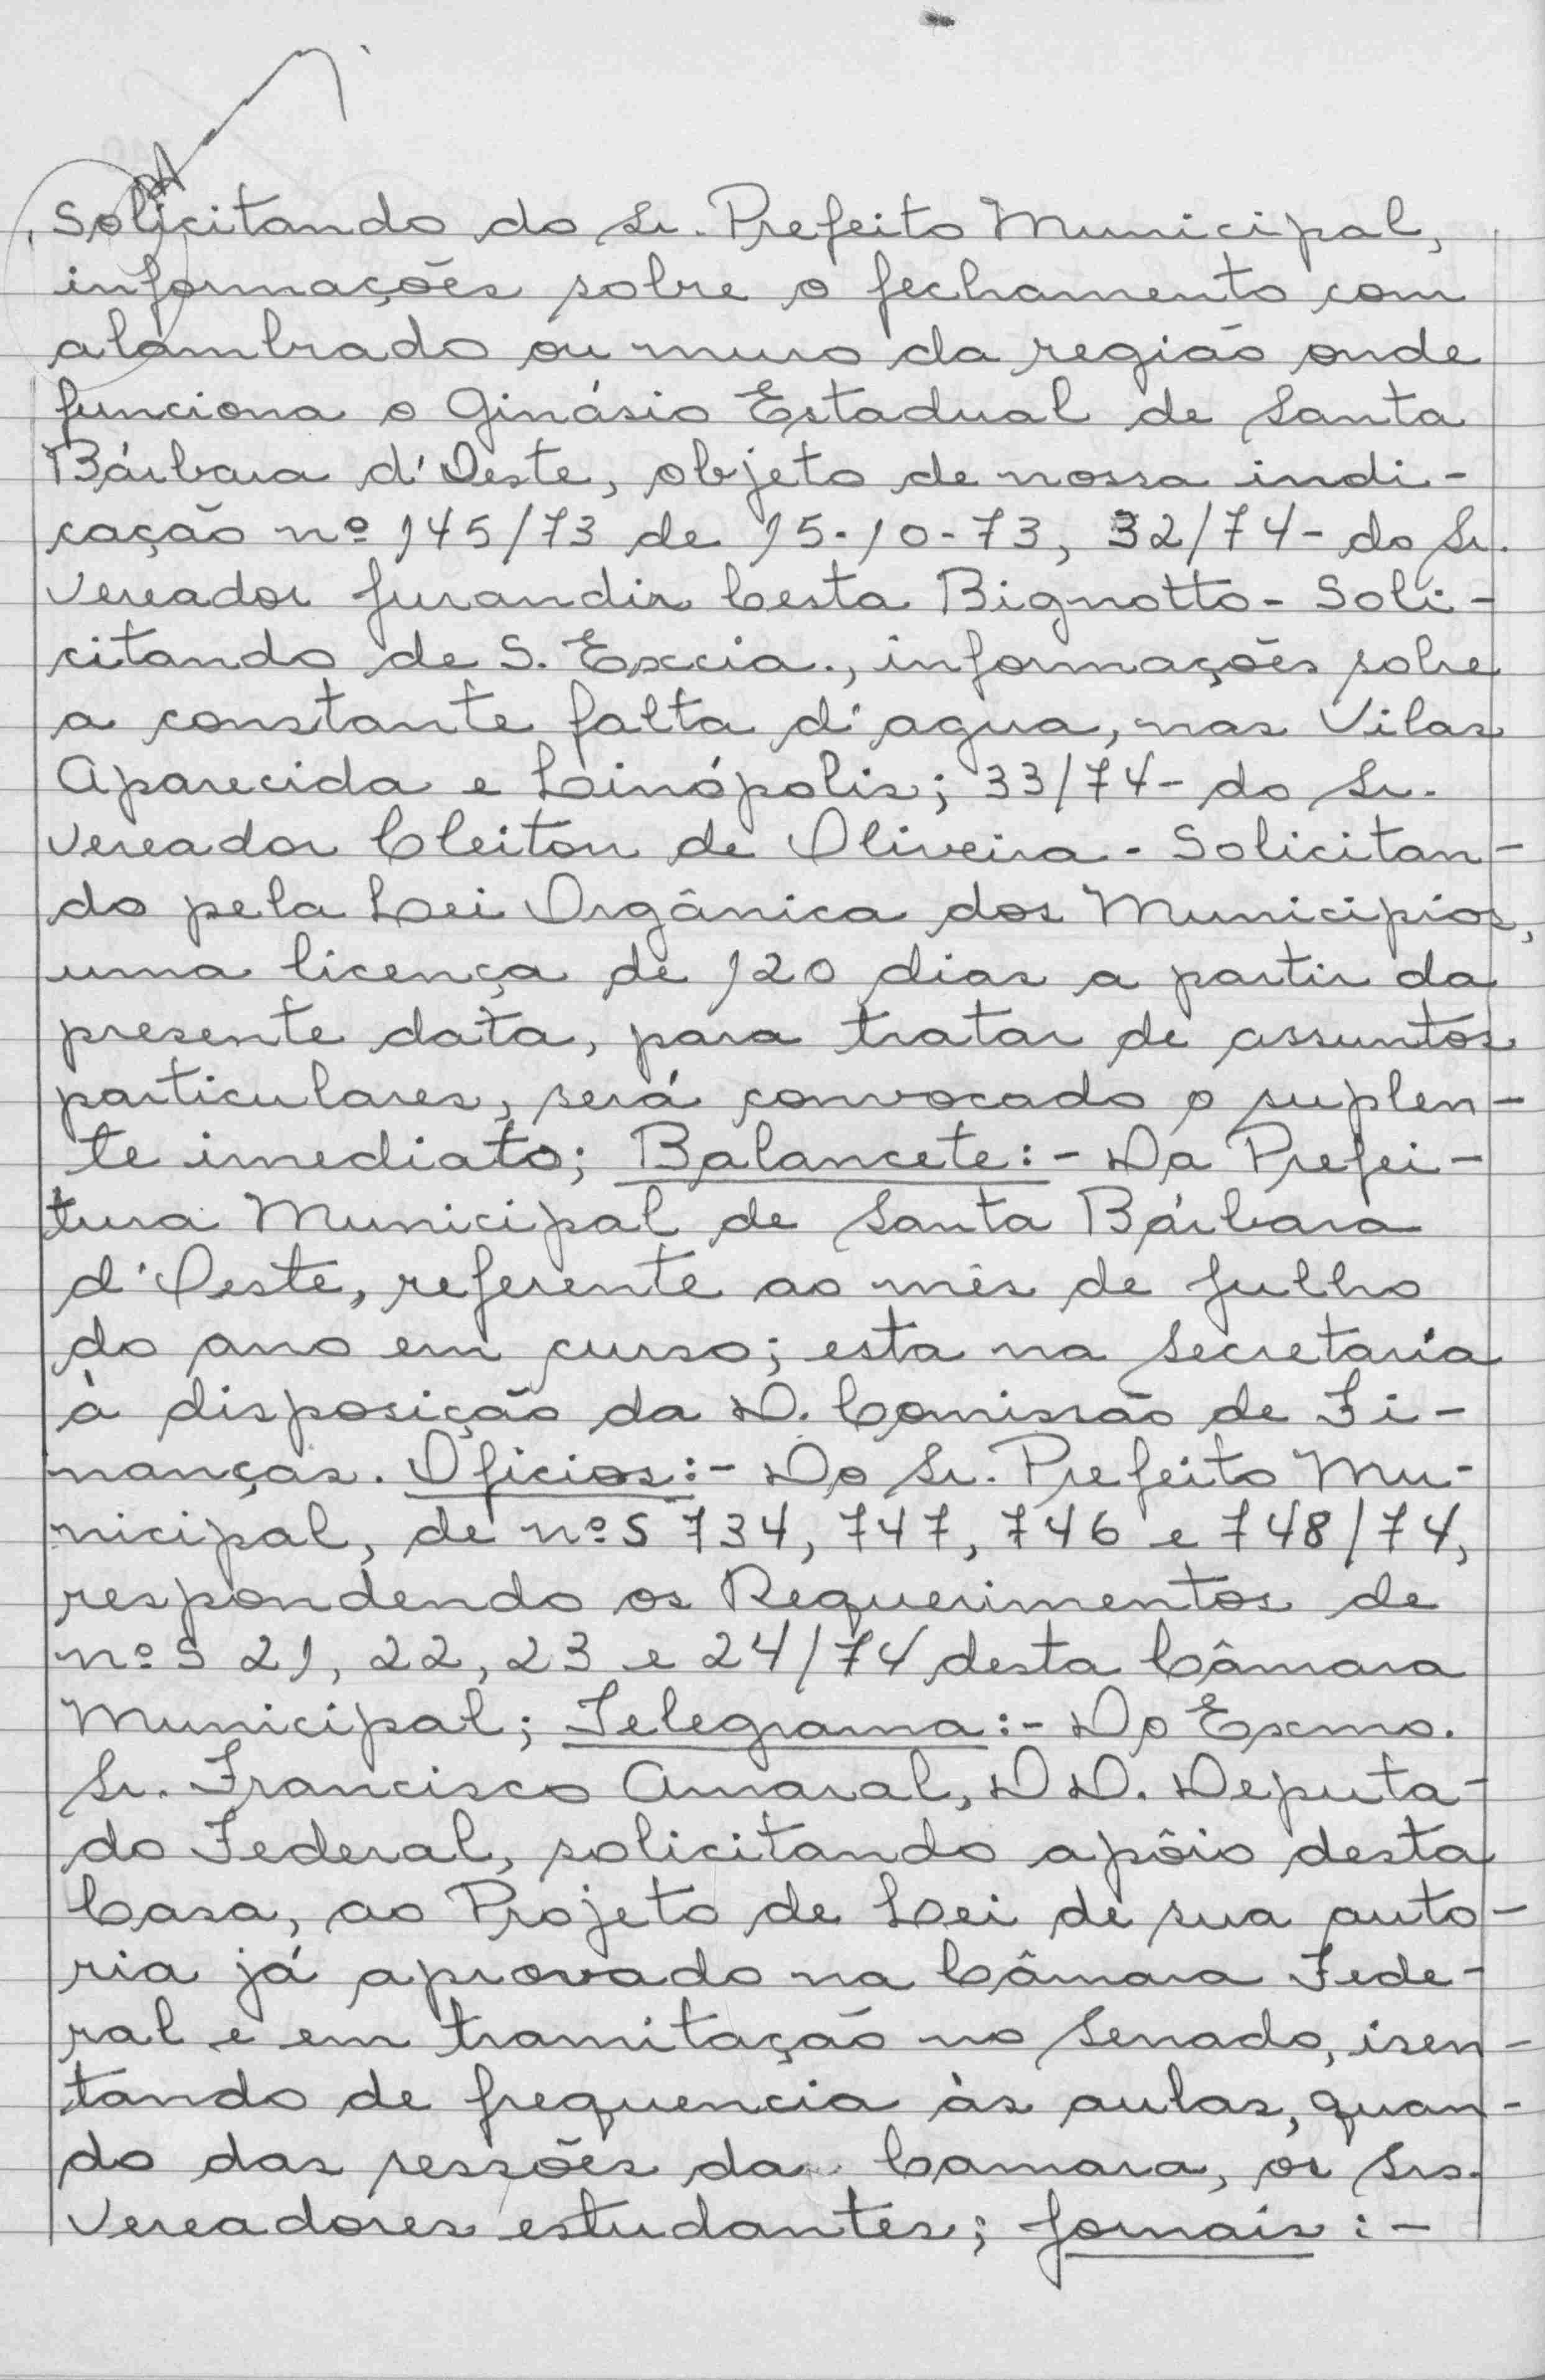 Solicitando do Sr. Prefeito Municipal,
informações sobre o fechamento com
alambrado ou muro da região onde
funciona o Ginásio Estadual de Santa
Bárbara d'Oeste, objeto de nossa indi-
cação nº 145/73 de 15-10-73, 32/74- do Sr.
Vereador Jurandir Cesta Bignotto - Soli-
citando de S. Excia., informações sobre
a constante falta d'agua, nas Vilas
Aparecida e Linópolis; 33/74- do Sr.
Vereador Cleiton de Oliveira - Solicitan-
do pela Lei Orgânica dos Municipios,
uma licença de 120 dias a partir da
presente data, para tratar de assuntos
particulares, será convocado o suplen-
te imediato; Balancete:- Da Prefei-
tura Municipal de Santa Bárbara
d'Oeste, referente ao mês de Julho
do ano em curso; esta na secretaria
à disposição da D. Comissão de Fi-
nanças. Oficios:- Do Sr. Prefeito Mu-
nicipal, de nºs 734, 747, 746 e 748/74,
respondendo os Requerimentos de
nºs 21, 22, 23 e 24/74 desta Câmara
Municipal; Telegrama:- Do Exmo.
Sr. Francisco Amaral, DD. Deputa-
do Federal, solicitando apôio desta
Casa, ao Projeto de Lei de sua auto-
ria já aprovado na Câmara Fede-
ral e em tramitação no Senado, isen-
tando de frequencia às aulas, quan-
do das sessões da Camara, os Srs.
Vereadores estudantes; Jornais:-